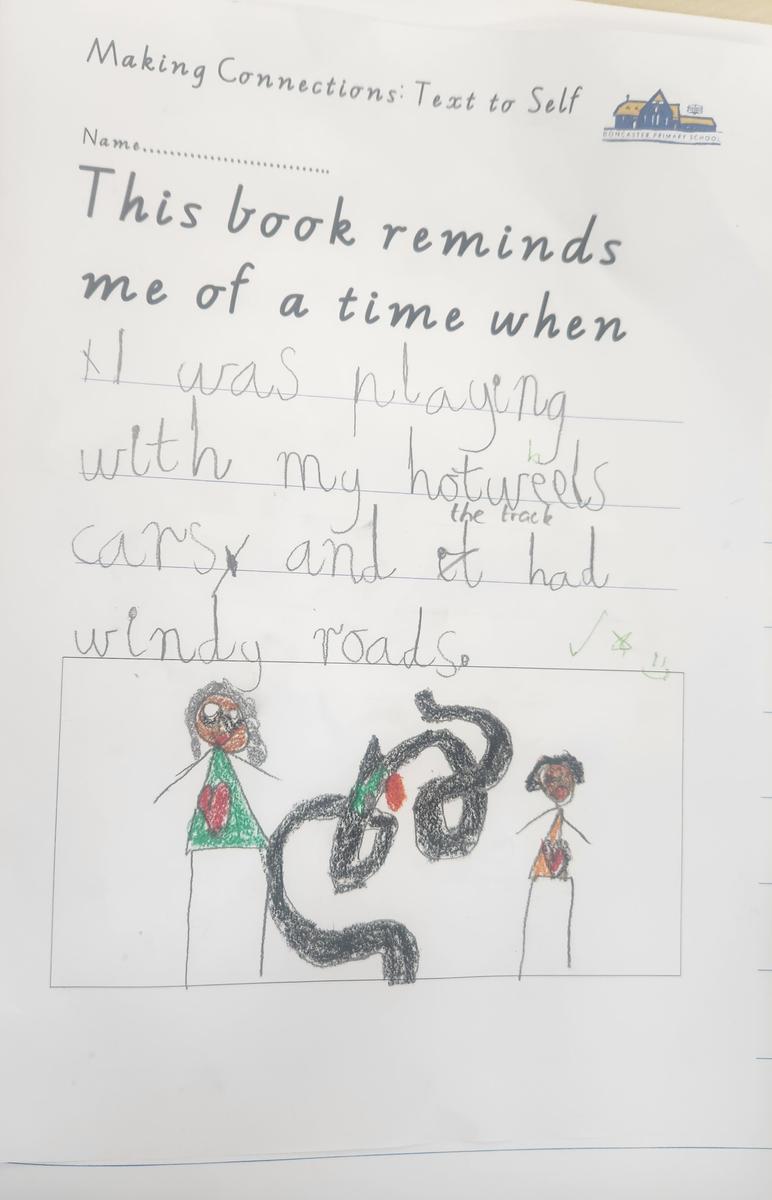 Making Connections: Text to Self
DONCASTER PRIMARY SCHOOL
Name..............................
This book reminds
me of a time when
I was playing
with my hotweels
h
the track
cars, and it had
windy roads.